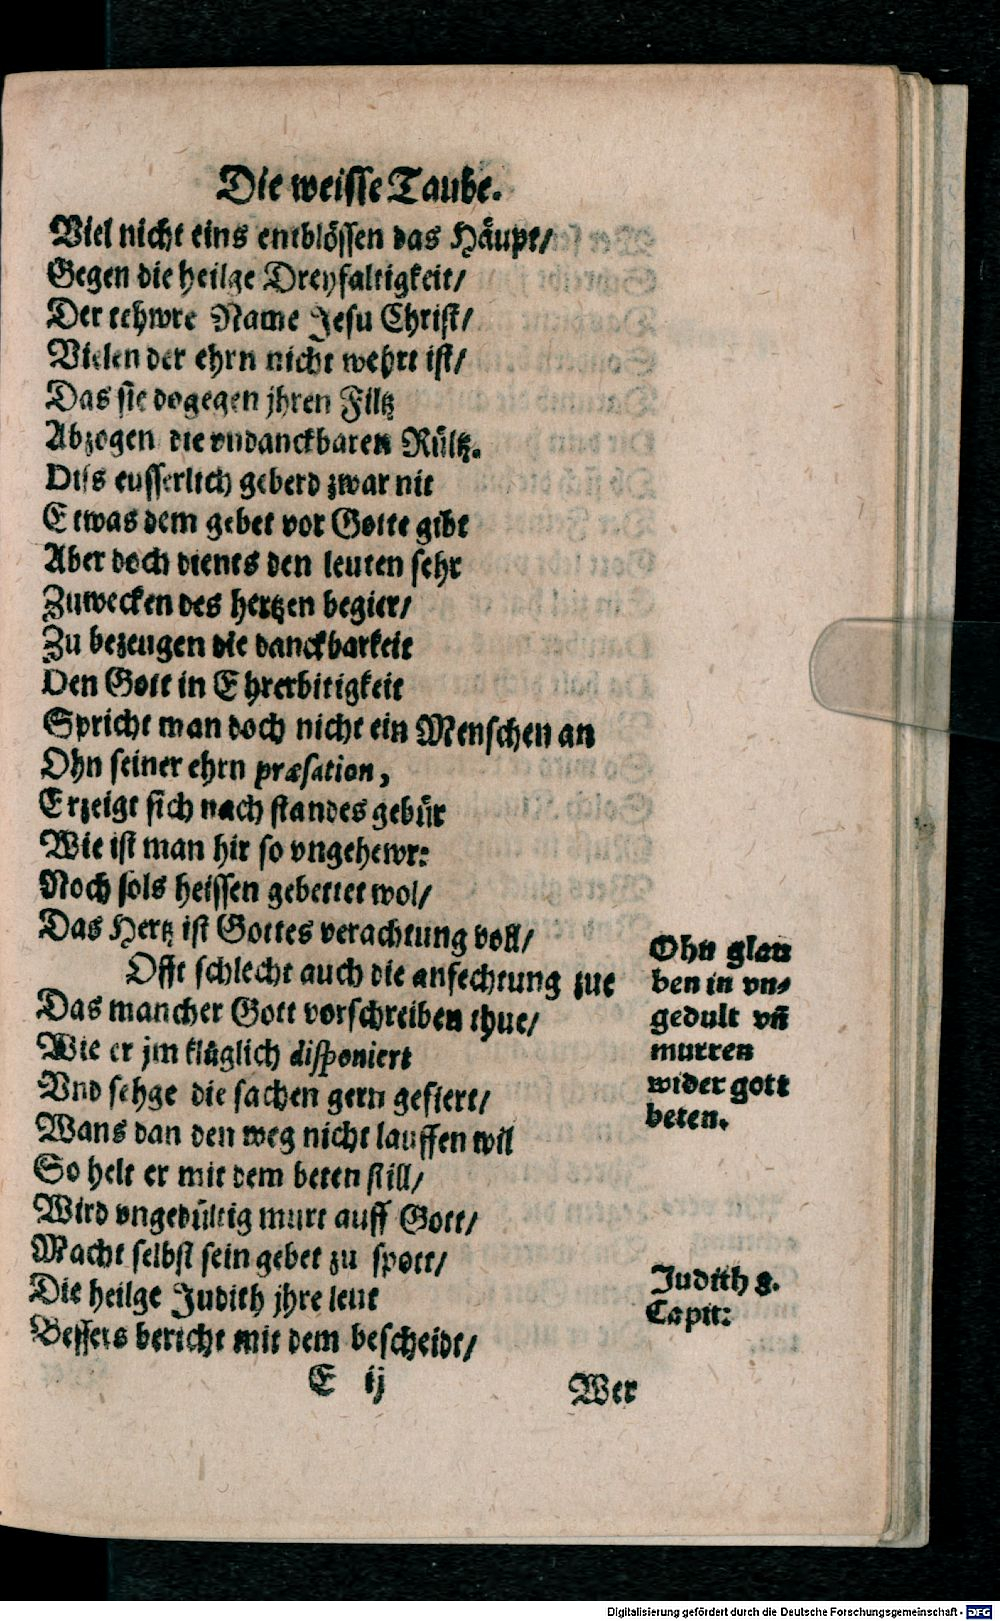 Die weisse Taube.
Viel nicht eins entblössen das Häupt/
Gegen die heilge Dreyfaltigkeit/
Der tehwre Name Jesu Christ/
Vielen der ehrn nicht wehrt ist/
Das sie dogegen jhren Filtz
Abzogen die vndanckbaren Rültz.
Diß eusserlich geberd zwar nit
Etwas dem gebet vor Gotte gibt
Aber doch dients den leuten sehr
Zuwecken des hertzen begier/
Zu bezeugen die danckbarkeit
Den Gott in Ehrerbitigkeit
Spricht man doch nicht ein Menschen an
Ohn seiner ehrn præfation,
Erzeigt sich nach standes gebür
Wie ist man hir so vngehewr:
Noch sols heissen gebettet wol/
Das Hertz ist Gottes verachtung voll/
Offt schlecht auch die anfechtung zue
Das mancher Gott vorschreiben thue/
Wie er jm klüglich disponiert
Vnd sehge die sachen gern gefiert/
Wans dan den weg nicht lauffen wil
So helt er mit dem beten still/
Wird vngedültig murt auff Gott/
Macht selbst sein gebet zu spott/
Die heilge Judith jhre leut
Bessers bericht mit dem bescheidt/
Ohn glau
ben in vn-
gedult vñ
murren
wider gott
beten.
Judith 8.
Capit:
E ij
Wer
Digitalisierung gefördert durch die Deutsche Forschungsgemeinschaft - DFG